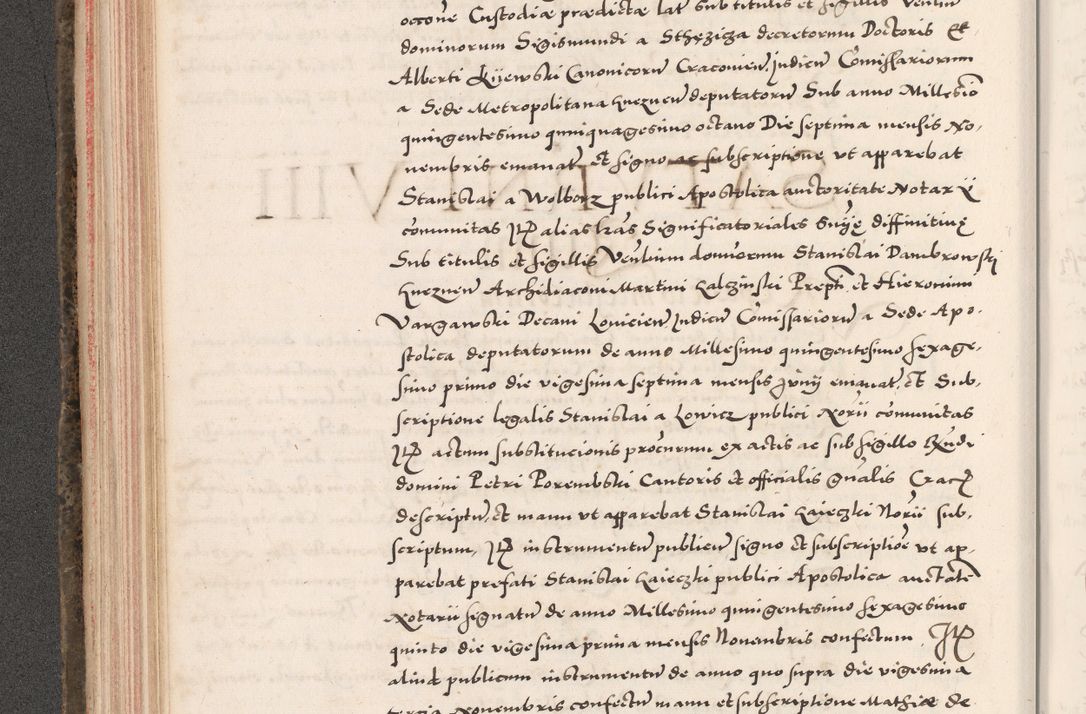 occone Custodiæ prædictæ lat sub titulis et sigillis
dominorum Sigismundi a Sthezicza decretorum Doctoris Et
Alberti Kijewski Canonicoru Cracovien, Judicu Comissariorum
a Sede Metropolitana gneznen deputatoru Sub anno Millesio
quingentesimo quinquagesimo octavo Die septima mensis No-
uembris emanat et signo ac subscriptione vt apparebat
Stanislai a Wolborz publici Apostolica auctoritate Notarij
comunitas Jtem alias lras Significatoriales Snÿę diffinitiuę
Sub titulis et sigillis Venlium dominorum Stanislai Dambrowskj
gneznen Archidiaconi Martini galczinski Prepti, et Hieronimi
Vargawski Decani Louicien, Judicu Comissarioru a Sede Apo-
stolica deputatorum de anno Millesimo quingentesimo sexage-
simo primo die vigesima septima mensis Junij emanat, et Sub-
scriptione legalis Stanislai a Lowicz publici Norii comunitas
Jtem actum substitucionis procurum ex actis ac sub sigillo Rndi
domini Petri Porembski Cantoris et officialis gnalis Crac
descriptu, et manu vt apparebat Stanislai gaieczki Norii sub-
scriptum, Jtem instrumentu publicu signo et subscriptioe vt ap-
parebat prefati Stanislai gaieczki publici Apostolica auctate
Notarii signatu de anno Millesimo quingentesimo sexagesimo
quinto die vigesima prima mensis Nouembris confectum Jtem
aliud publicum instrumentu de anno quo supra die vigesima
tercia Nouembris confectu manu et subscriptione Mathiæ de